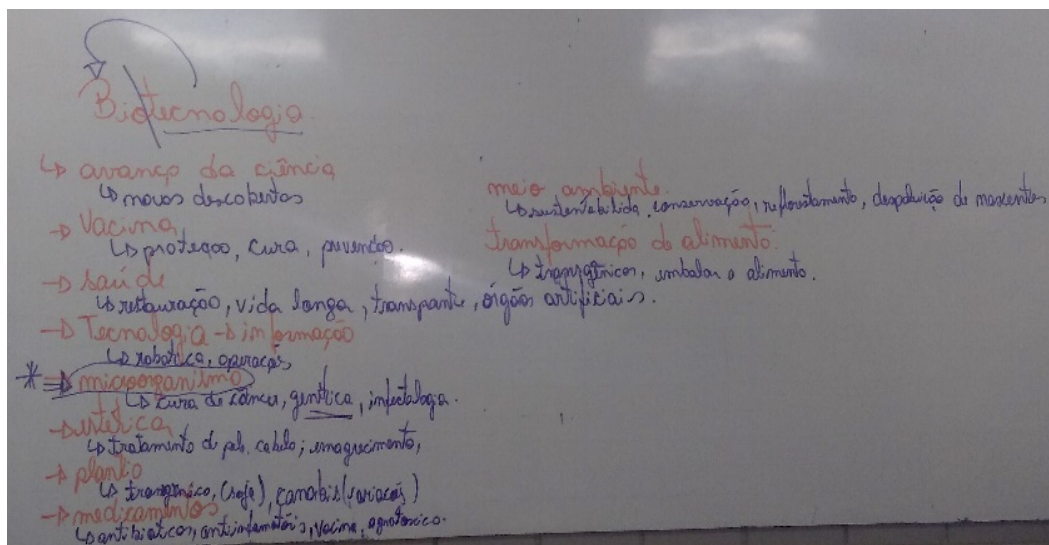 Biotecnologia
↳ avanço da ciência
↳ novas descobertas
→ Vacina
↳ proteção, cura, prevenção.
→ saúde
↳ restauração, vida longa, transpante, órgãos artificiais.
→ Tecnologia → informação
↳ robotica, operações
* → microorganismo
↳ cura de câncer, genética, infectologia.
→ estética
↳ tratamento de pele, cabelo; emagrecimento,
→ plantio
↳ transgênico, (soja), canabis (variações)
→ medicamentos
↳ antibioticos, antiinflamatóis, vacina,
meio ambiente.
↳ sustentabilida, conservação, reflorestamento, despoluição de nascentes
transformação do alimento.
↳ transgênicos, embalar o alimento.